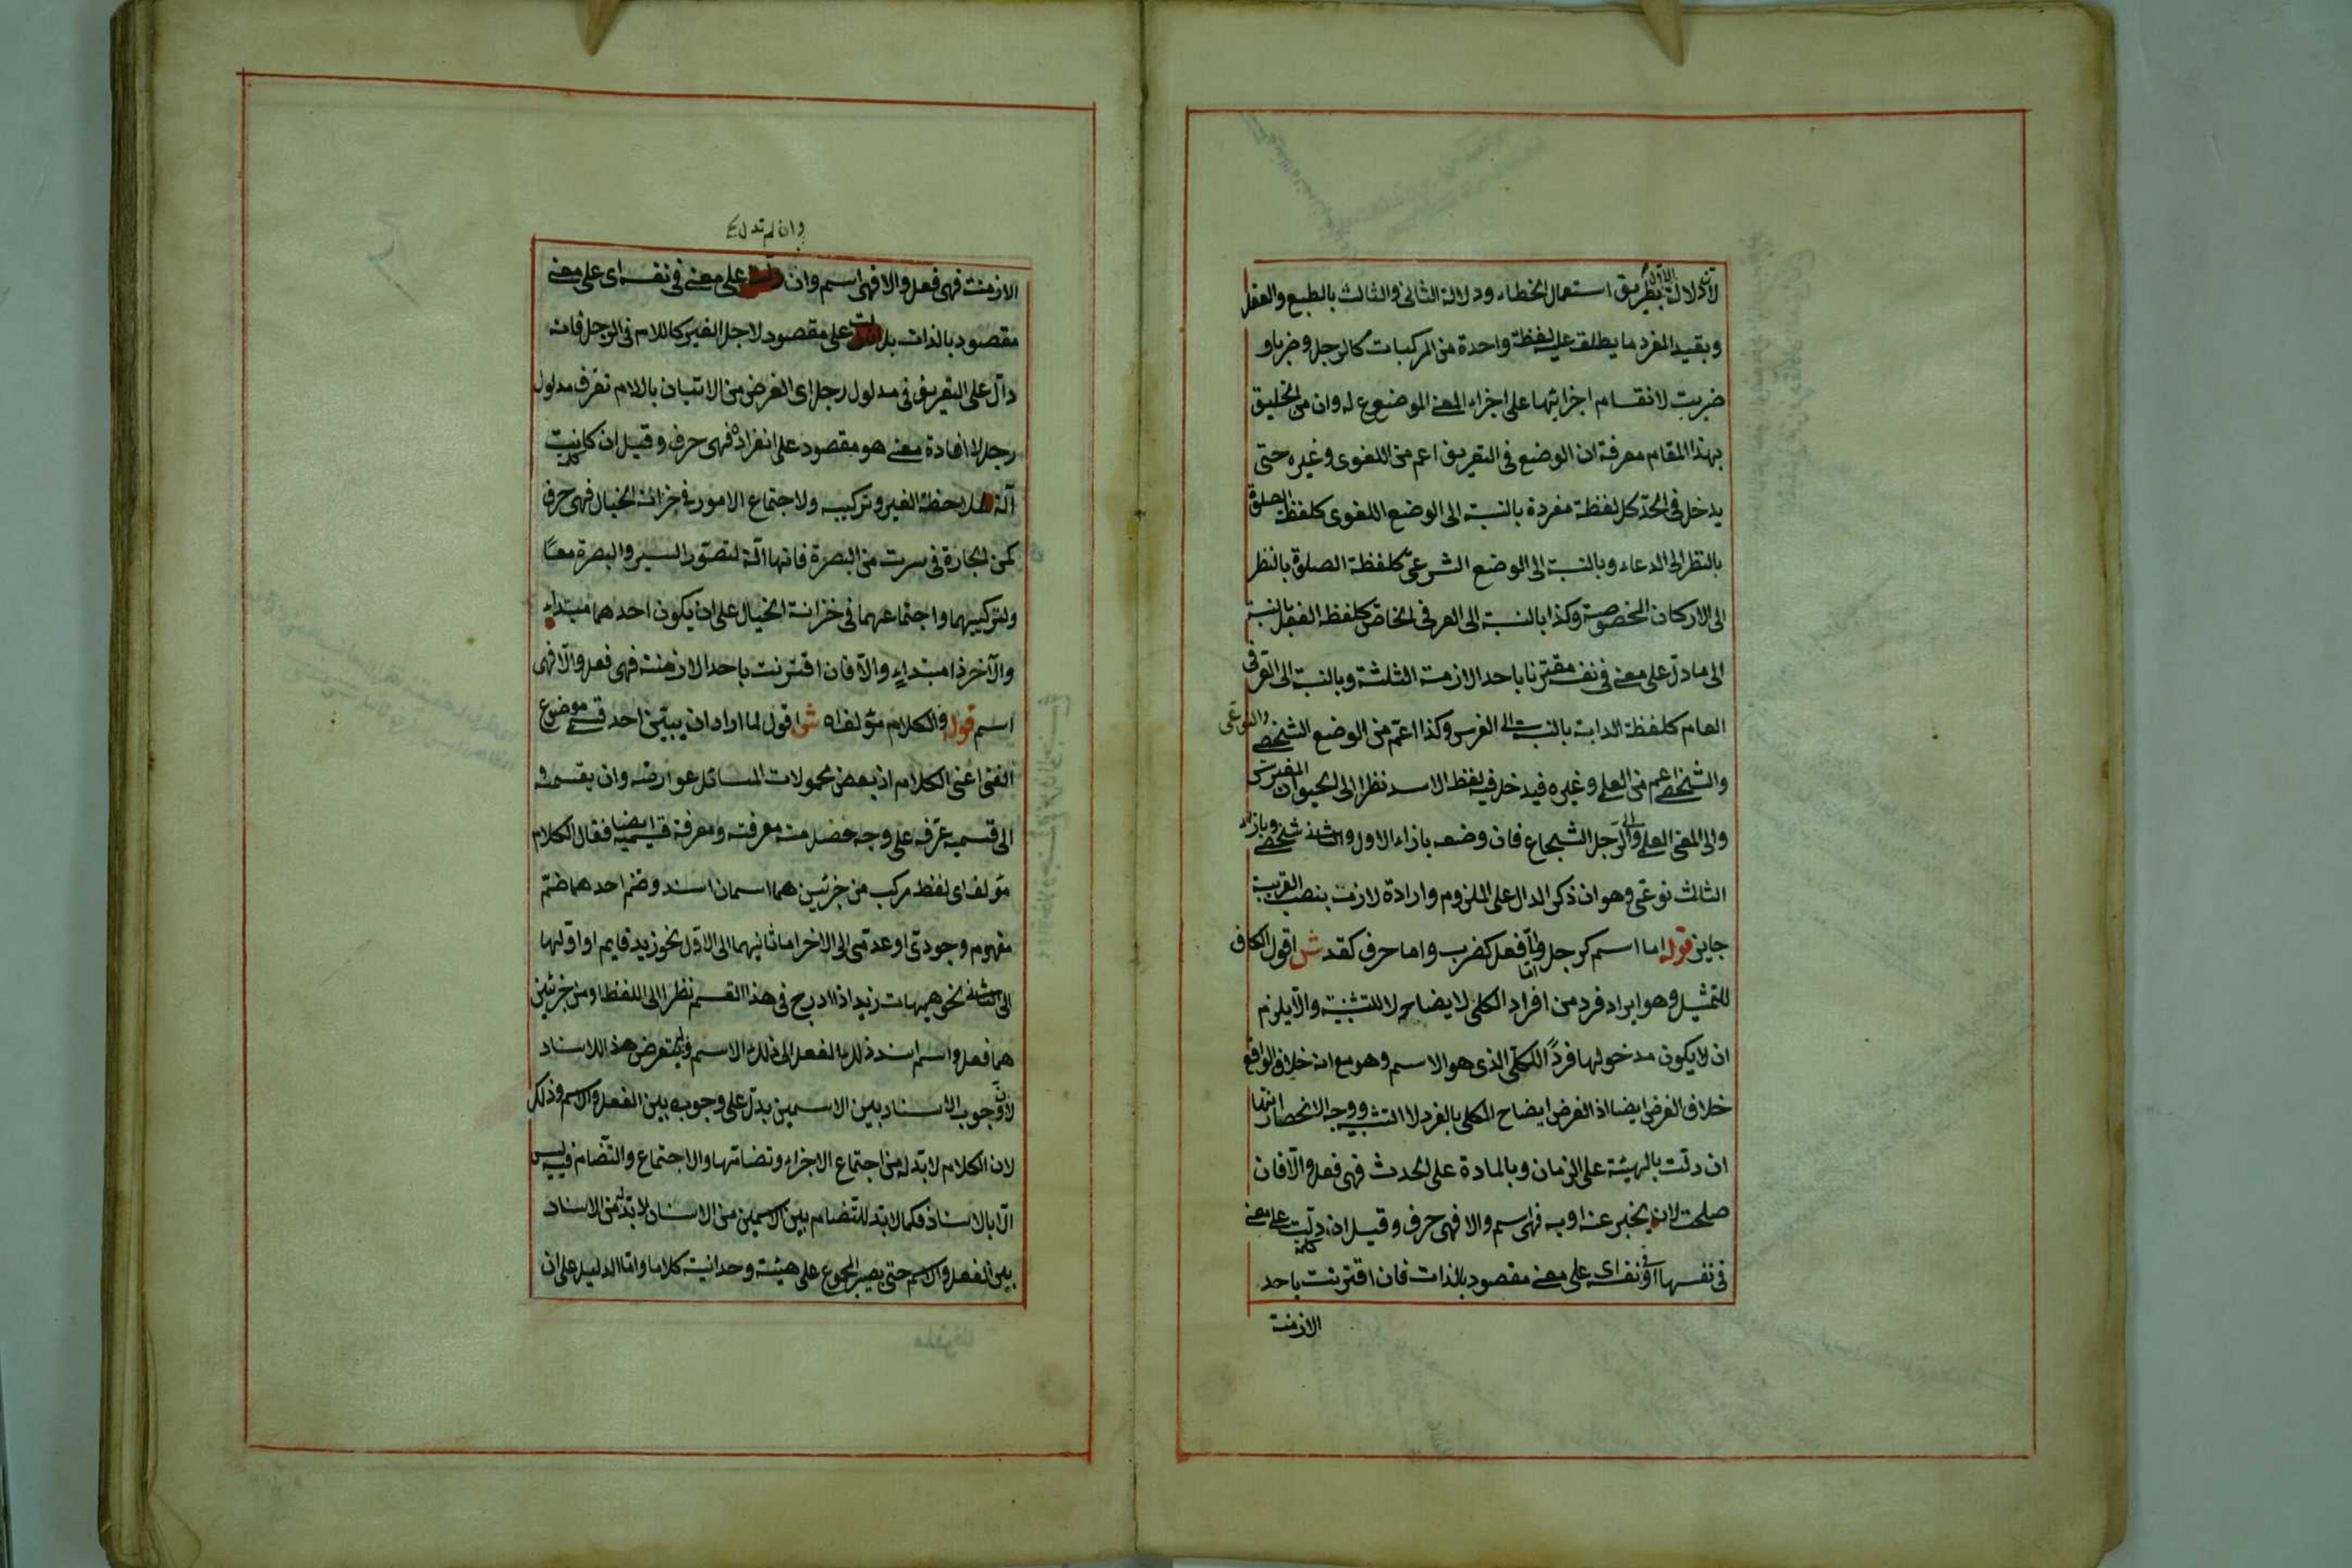 لان دلالة الاول بطريق استعمال الخطاء ودلالة الثانى والثالث بالطبع والعقل
وبقيد المفرد ما يطلق عليه لفظة واحدة من المركبات كالرجل وضربا و
ضربت لانقسام اجزائها على اجزاء المعنى الموضوع له وان من الخليق
بهذا المقام معرفة ان الوضع فى التعريف اعم من اللغوى وغيره حتى
يدخل فى الحد كل لفظة مفردة بالنسبة الى الوضع اللغوى كلفظ الصلوة
بالنظر الى الدعاء وبالنسبة الى الوضع الشرعى كلفظة الصلوة بالنظر
الى الاركان المخصوصة وكذا بالنسبة الى العرفى الخاص كلفظ الفعل بالنسبة
الى ما دل على معنى فى نفسه مقترنا باحد الازمنة الثلثة وبالنسبة الى العرفى
العام كلفظة الدابة بالنسبة الى الفرس وكذا اعم من الوضع الشخصى والنوعى
والشخصى اعم من العلمى وغيره فيدخل فيه لفظ الاسد نظرا الى الحيوان المفترس
والى المعنى العلمى والى الرجل الشجاع فان وضعه بازاء الاول والثانى شخصى وبازاء
الثالث نوعى وهو ان ذكر الدال على الملزوم وارادة لازمه بنصب القرينة
جايز قوله اما اسم كرجل واما فعل كضرب واما حرف كقد ش اقول الكاف
للتمثيل وهو ايراد فرد من افراد الكلى لايضاحه لا للتشبيه والا يلزم
ان لا يكون مدخولها فردا للكلى الذى هو الاسم وهو مع انه خلاف الواقع
خلاف الغرض ايضا اذ الغرض ايضاح الكلى بالفرد لا التشبيه ووجه الانحصار انها
ان دلت بالهيئة على الزمان وبالمادة على الحدث فهى فعل والا فان
صلحت لان يخبر عنه او به فهى اسم والا فهى حرف وقيل ان دلت كلمة على معنى
فى نفسها او فى نفسه اى على معنى مقصود بالذات فان اقترنت باحد
الازمنة
وان لم تدل
الازمنة فهى فعل والا فهى اسم وان على معنى فى نفسه اى على معنى
مقصود بالذات بل على مقصود لاجل الغير كاللام فى الرجل فانه
دال على التعريف فى مدلول رجل اى الغرض من الاتيان باللام تعرف مدلول
رجل لا افادة معنى هو مقصود على انفراده فهى حرف وقيل ان كانت كلمة
آلة لملاحظة الغير وتركيبه ولاجتماع الامور فى خزانة الخيال فهى حرف
كمن الجارة فى سرت من البصرة فانها آلة لتصور السير والبصرة معا
ولتركيبهما واجتماعهما فى خزانة الخيال على ان يكون احدهما مبتداء
والآخر ذا مبتداء والا فان اقترنت باحد الازمنة فهى فعل والا فهى
اسم قوله والكلام مؤلف اه ش اقول لما اراد ان يبين احد قسمى موضوع
الفن اعنى الكلام اذ بعض محمولات المسائل عوارضه وان يقسمه
الى قسميه عرفه على وجه حصل منه معرفته ومعرفة قسميه ايضا فقال الكلام
مؤلف اى لفظ مركب من جزئين هما اسمان اسند وضم احدهما ضم
مفهوم وجودى او عدمى الى الاخر اما ثانيهما الى الاول نحو زيد قايم او اولها
الى الثانى نحو هيهات زيد اذا ادرج فى هذا القسم نظرا الى اللفظ او من جزئين
هما فعل واسم اسند ذلك الفعل الى ذلك الاسم ولم يتعرض هذا الاسناد
لان وجوب الاسناد بين الاسمين يدل على وجوبه بين الفعل والاسم وذلك
لان الكلام لا بد له من اجتماع الاجزاء وتضامها والاجتماع والتضام فيه ليس
الا بالاسناد فكما لا بد للتضام بين الاسمين من الاسناد لا بد له من الاسناد
بين الفعل والاسم حتى يصير المجموع على هيئة وحدانية كلاما واما الدليل على ان